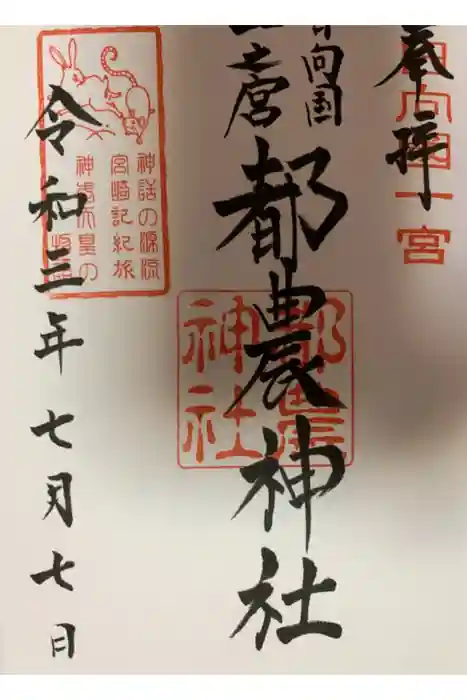 奉拝
日向国一宮
日向国
一之宮
都農神社
都農
神社
神話の源流
宮崎記紀旅
神武天皇の
令和三年七月七日